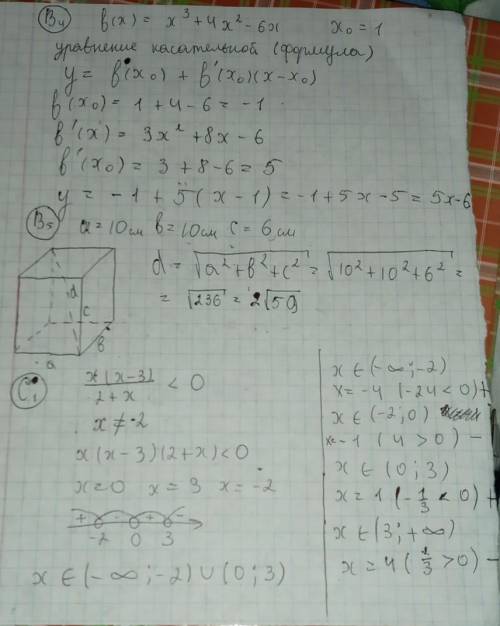 B4 f(x) = x³ + 4x² - 6x x₀ = 1
уравнение касательной (формула)
y = f(x₀) + f'(x₀)(x-x₀)
f(x₀) = 1 + 4 - 6 = -1
f'(x) = 3x² + 8x - 6
f'(x₀) = 3 + 8 - 6 = 5
y = -1 + 5(x - 1) = -1 + 5x - 5 = 5x-6
B5 a = 10 см в = 10 см c = 6 см
d = √(a² + в² + c²) = √(10² + 10² + 6²) =
= √236 = 2√59
d
c
в
a
C1 x(x-3)/(2+x) < 0
x ≠ -2
x(x-3)(2+x) < 0
x=0 x = 3 x = -2
+ - + -
-2 0 3
x ∈ (-∞; -2) ∪ (0; 3)
x ∈ (-∞; -2)
x = -4 (-24 < 0) +
x ∈ (-2; 0)
x = -1 (4 > 0) -
x ∈ (0; 3)
x = 1 (-1/3 < 0) +
x ∈ (3; +∞)
x = 4 (1/3 > 0) -